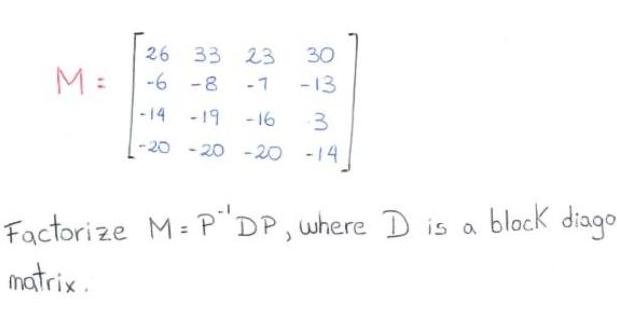 M = [ 26 33 23 30
-6 -8 -1 -13
-14 -19 -16 3
-20 -20 -20 -14 ]
Factorize M = P⁻¹DP, where D is a block diago
matrix.